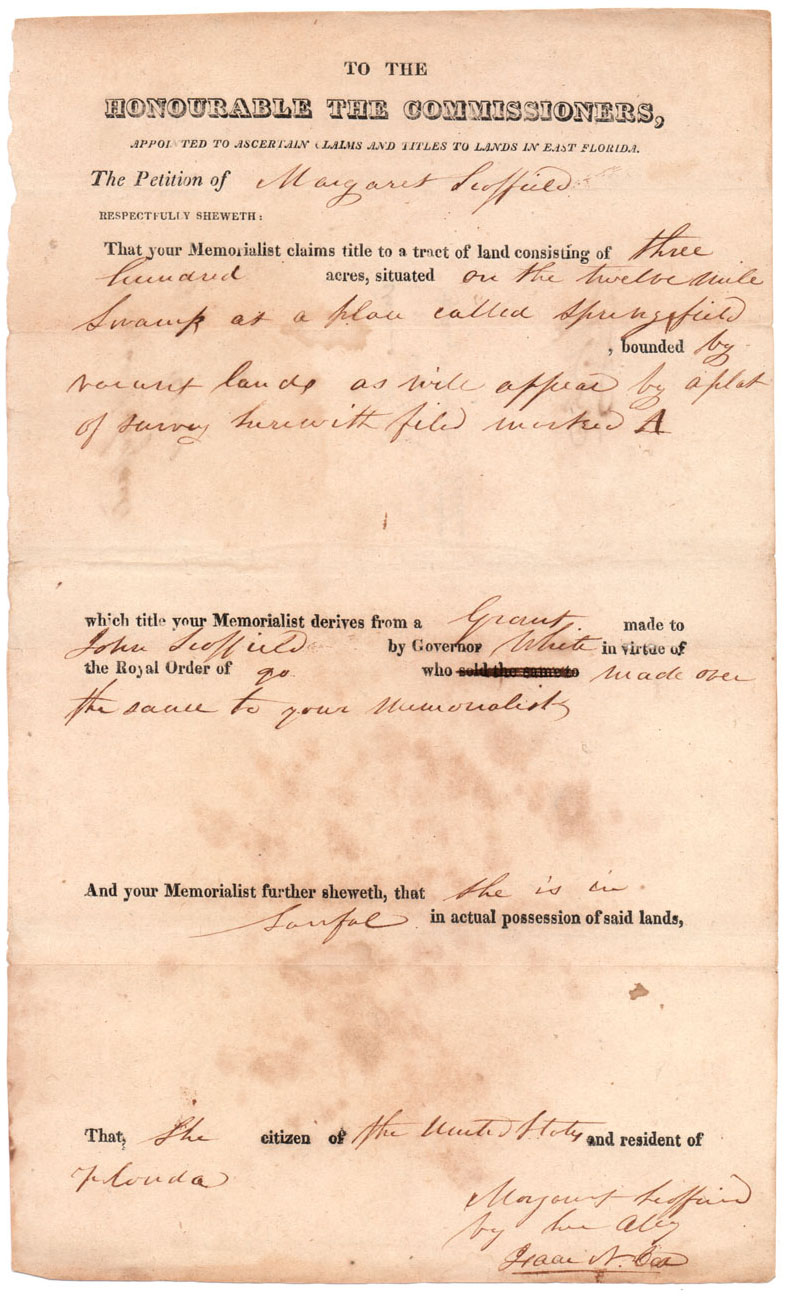 TO THE
HONOURABLE THE COMMISSIONERS,
APPOINTED TO ASCERTAIN CLAIMS AND TITLES TO LANDS IN EAST FLORIDA.
The Petition of Margaret Scoffield
RESPECTFULLY SHEWETH:
That your Memorialist claims title to a tract of land consisting of three
hundred acres, situated on the twelve mile
Swamp at a place called Springsfield
, bounded by
vacant lands as will appear by a plat
of survey herewith filed marked A
which title your Memorialist derives from a Grant made to
John Scoffield by Governor White in virtue of
the Royal Order of 90 who sold the same to made over
the same to your memorialist
And your Memorialist further sheweth, that she is in
lawful in actual possession of said lands,
That, She citizen of the United States and resident of
Florida
Margaret Scoffield
by her Atty
Isaac N. Cox